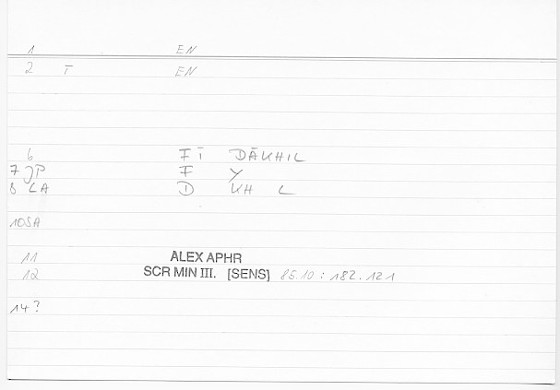 1 EN
2 T EN
6 FĪ DĀKHIL
7 JP F Y
8 LA D KH L
10SA
11 ALEX APHR
12 SCR MIN III. [SENS] 85.10 : 182.121
14?